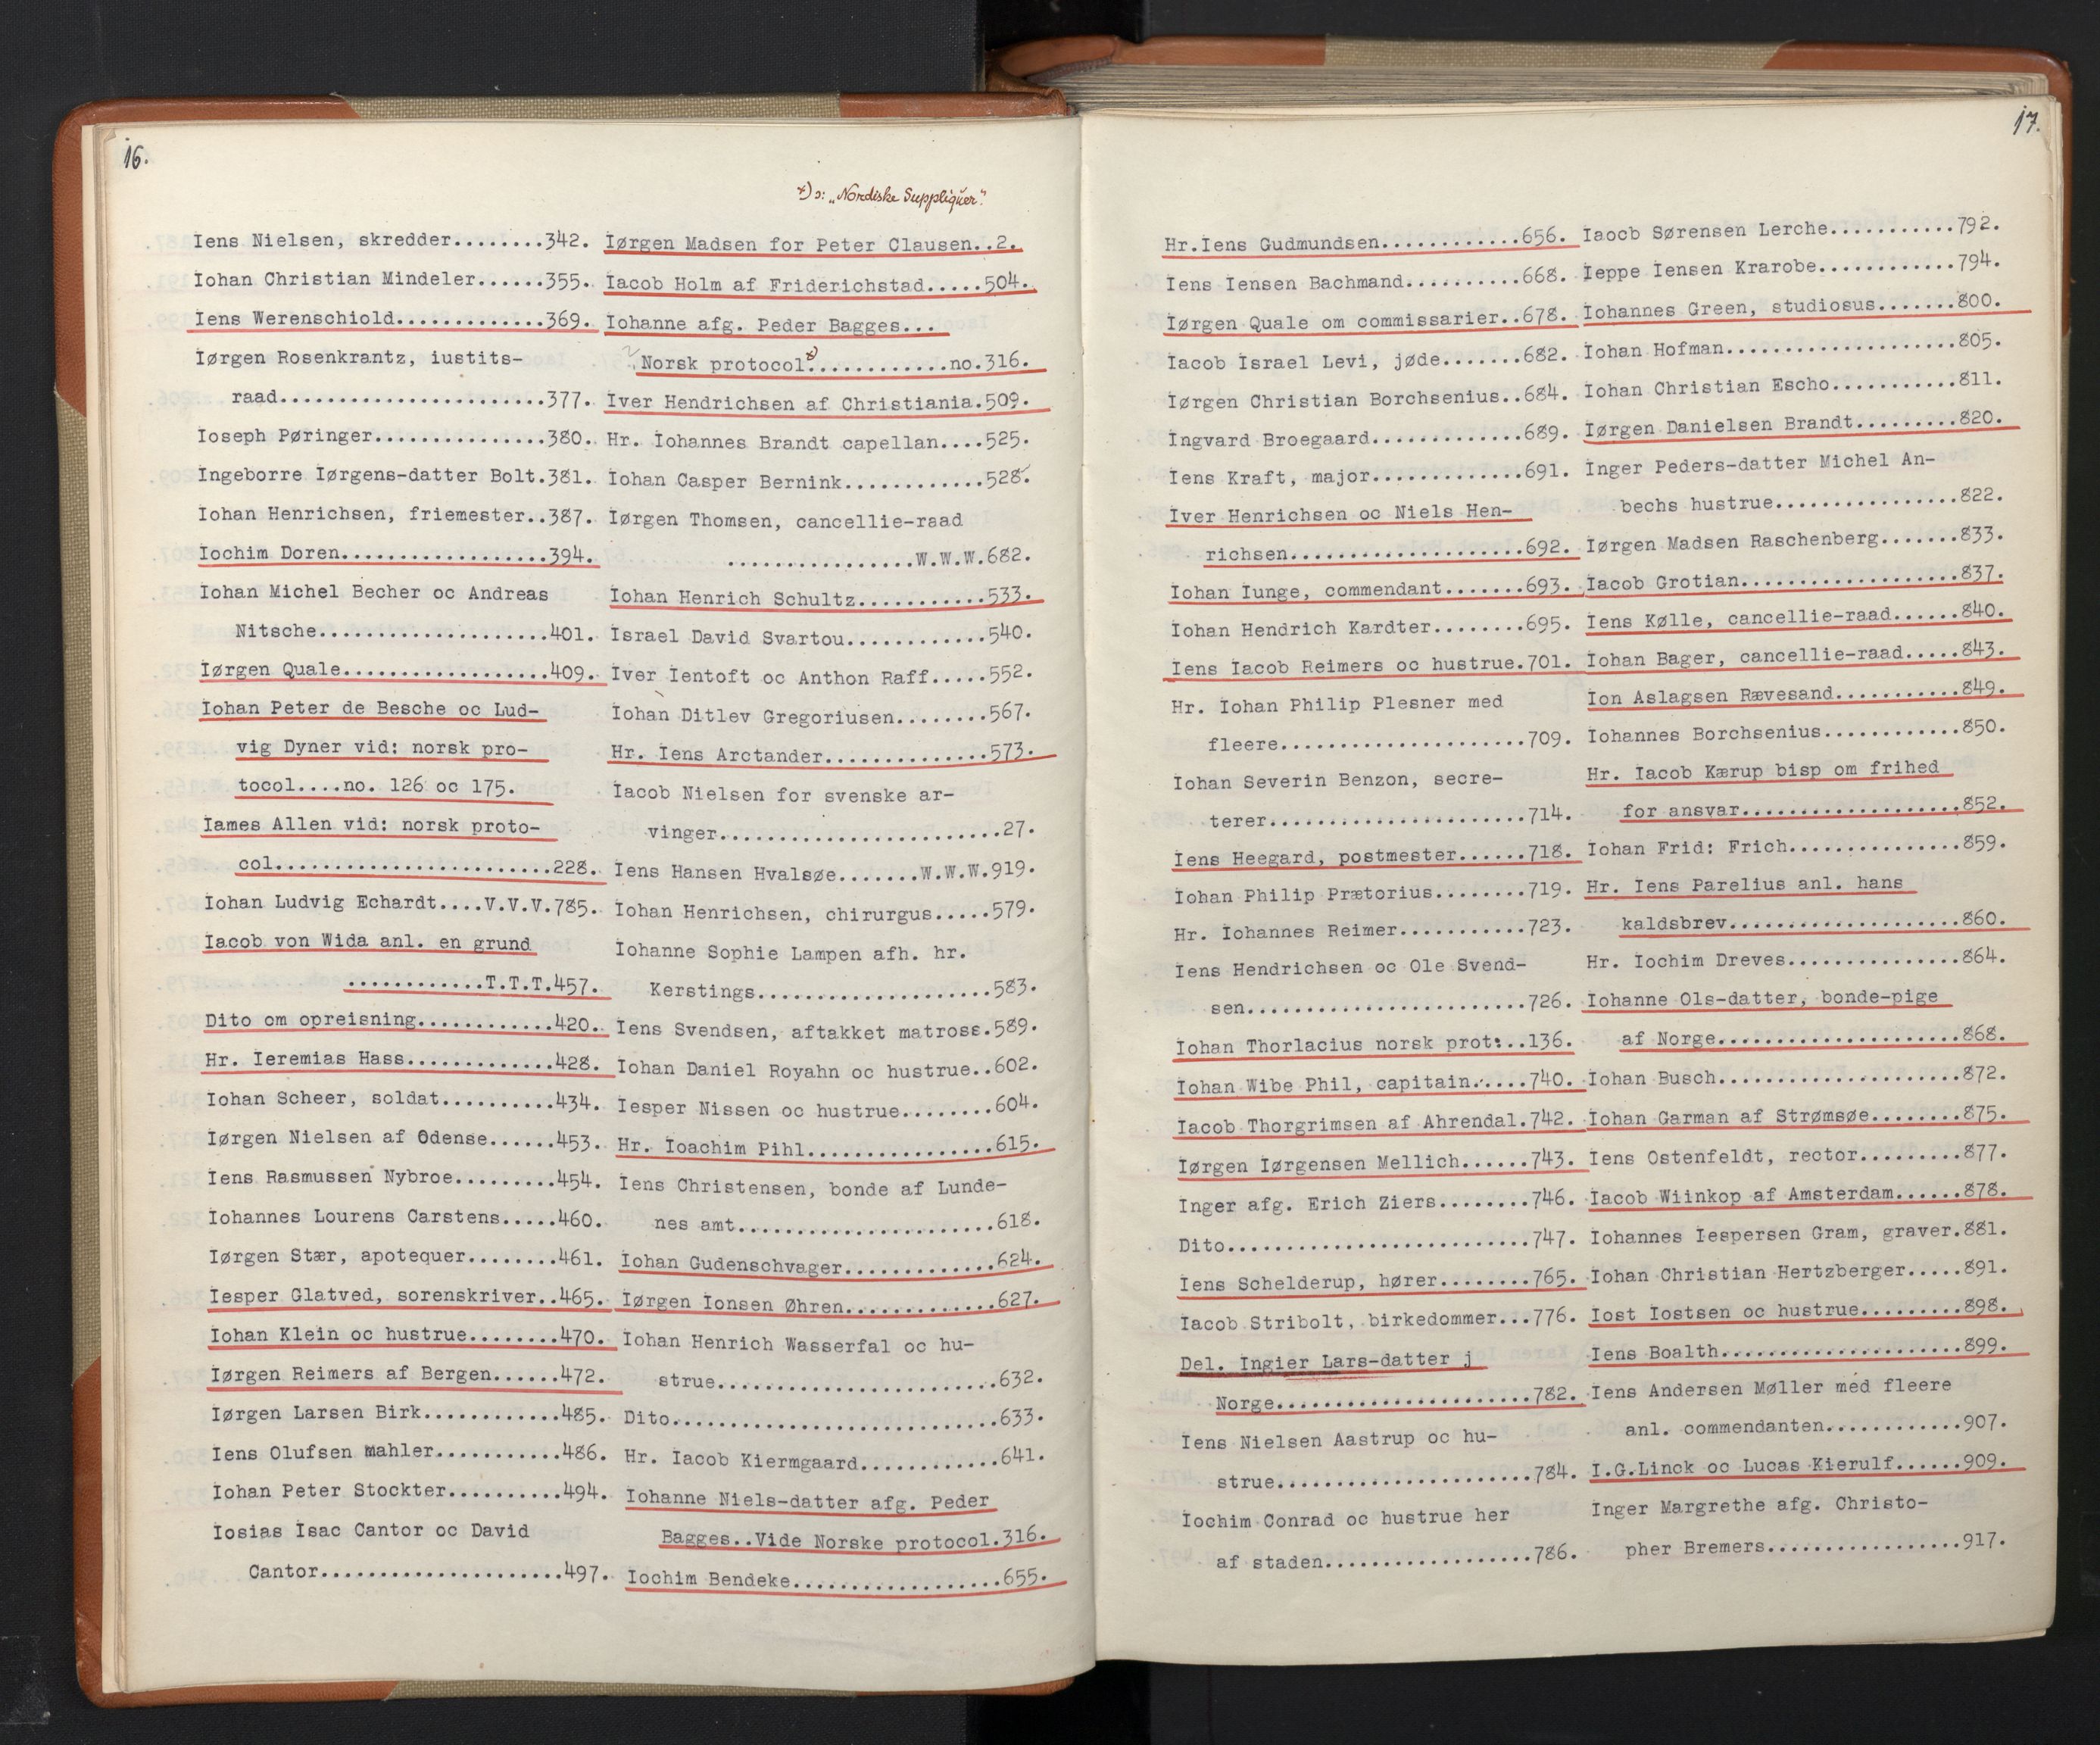 16.
*) ɔ: „Nordiske Suppliquer."
Iens Nielsen, skredder........342.
Iohan Christian Mindeler......355.
Iens Werenschiold.............369.
Iørgen Rosenkrantz, iustits-
raad.......................377.
Ioseph Pøringer...............380.
Ingeborre Iørgens-datter Bolt.381.
Iohan Henrichsen, friemester..387.
Iochim Doren..................394.
Iohan Michel Becher oc Andreas
Nitsche....................401.
Iørgen Quale..................409.
Iohan Peter de Besche oc Lud-
vig Dyner vid: norsk pro-
tocol....no. 126 oc 175.
Iames Allen vid: norsk proto-
col........................228.
Iohan Ludvig Echardt....V.V.V.785.
Iacob von Wida anl. en grund
............T.T.T.457.
Dito om opreisning............420.
Hr. Ieremias Hass.............428.
Iohan Scheer, soldat..........434.
Iørgen Nielsen af Odense......453.
Iens Rasmussen Nybroe.........454.
Iohannes Lourens Carstens.....460.
Iørgen Stær, apotequer........461.
Iesper Glatved, sorenskriver..465.
Iohan Klein oc hustrue........470.
Iørgen Reimers af Bergen......472.
Iørgen Larsen Birk............485.
Iens Olufsen mahler...........486.
Iohan Peter Stockter..........494.
Iosias Isac Cantor oc David
Cantor.....................497.
Iørgen Madsen for Peter Clausen..2.
Iacob Holm af Friderichstad.....504.
Iohanne afg. Peder Bagges...
Norsk protocol*)............no.316.
Iver Hendrichsen af Christiania.509.
Hr. Iohannes Brandt capellan....525.
Iohan Casper Bernink............528.
Iørgen Thomsen, cancellie-raad
................W.W.W.682.
Iohan Henrich Schultz...........533.
Israel David Svartou............540.
Iver Ientoft oc Anthon Raff.....552.
Iohan Ditlev Gregoriusen........567.
Hr. Iens Arctander..............573.
Iacob Nielsen for svenske ar-
vinger.........................27.
Iens Hansen Hvalsøe.......W.W.W.919.
Iohan Henrichsen, chirurgus.....579.
Iohanne Sophie Lampen afh. hr.
Kerstings....................583.
Iens Svendsen, aftakket matross.589.
Iohan Daniel Royahn oc hustrue..602.
Iesper Nissen oc hustrue........604.
Hr. Ioachim Pihl................615.
Iens Christensen, bonde af Lunde-
nes amt......................618.
Iohan Gudenschvager.............624.
Iørgen Ionsen Øhren.............627.
Iohan Henrich Wasserfal oc hu-
strue........................632.
Dito............................633.
Hr. Iacob Kiermgaard............641.
Iohanne Niels-datter afg. Peder
Bagges..Vide Norske protocol.316.
Iochim Bendeke..................655.
17.
Hr.Iens Gudmundsen............656.
Iens Iensen Bachmand..........668.
Iørgen Quale om commissarier..678.
Iacob Israel Levi, jøde.......682.
Iørgen Christian Borchsenius..684.
Ingvard Broegaard.............689.
Iens Kraft, major.............691.
Iver Henrichsen oc Niels Hen-
richsen....................692.
Iohan Iunge, commendant.......693.
Iohan Hendrich Kardter........695.
Iens Iacob Reimers oc hustrue.701.
Hr. Iohan Philip Plesner med
fleere.....................709.
Iohan Severin Benzon, secre-
terer......................714.
Iens Heegard, postmester......718.
Iohan Philip Prætorius........719.
Hr. Iohannes Reimer...........723.
Iens Hendrichsen oc Ole Svend-
sen........................726.
Iohan Thorlacius norsk prot:..136.
Iohan Wibe Phil, capitain.....740.
Iacob Thorgrimsen af Ahrendal.742.
Iørgen Iørgensen Mellich......743.
Inger afg. Erich Ziers........746.
Dito..........................747.
Iens Schelderup, hører........765.
Iacob Stribolt, birkedommer...776.
Del. Ingier Lars-datter j
Norge......................782.
Iens Nielsen Aastrup oc hu-
strue......................784.
Iochim Conrad oc hustrue her
af staden..................786.
Iaocb Sørensen Lerche...........792.
Ieppe Iensen Krarobe............794.
Iohannes Green, studiosus.......800.
Iohan Hofman....................805.
Iohan Christian Escho...........811.
Iørgen Danielsen Brandt.........820.
Inger Peders-datter Michel An-
bechs hustrue................822.
Iørgen Madsen Raschenberg.......833.
Iacob Grotian...................837.
Iens Kølle, cancellie-raad......840.
Iohan Bager, cancellie-raad.....843.
Ion Aslagsen Rævesand...........849.
Iohannes Borchsenius............850.
Hr. Iacob Kærup bisp om frihed
for ansvar...................852.
Iohan Frid: Frich...............859.
Hr. Iens Parelius anl. hans
kaldsbrev....................860.
Hr. Iochim Dreves...............864.
Iohanne Ols-datter, bonde-pige
af Norge.....................868.
Iohan Busch.....................872.
Iohan Garman af Strømsøe........875.
Iens Ostenfeldt, rector.........877.
Iacob Wiinkop af Amsterdam......878.
Iohannes Iespersen Gram, graver.881.
Iohan Christian Hertzberger.....891.
Iost Iostsen oc hustrue.........898.
Iens Boalth.....................899.
Iens Andersen Møller med fleere
anl. commendanten............907.
I.G.Linck oc Lucas Kierulf......909.
Inger Margrethe afg. Christo-
pher Bremers.................917.